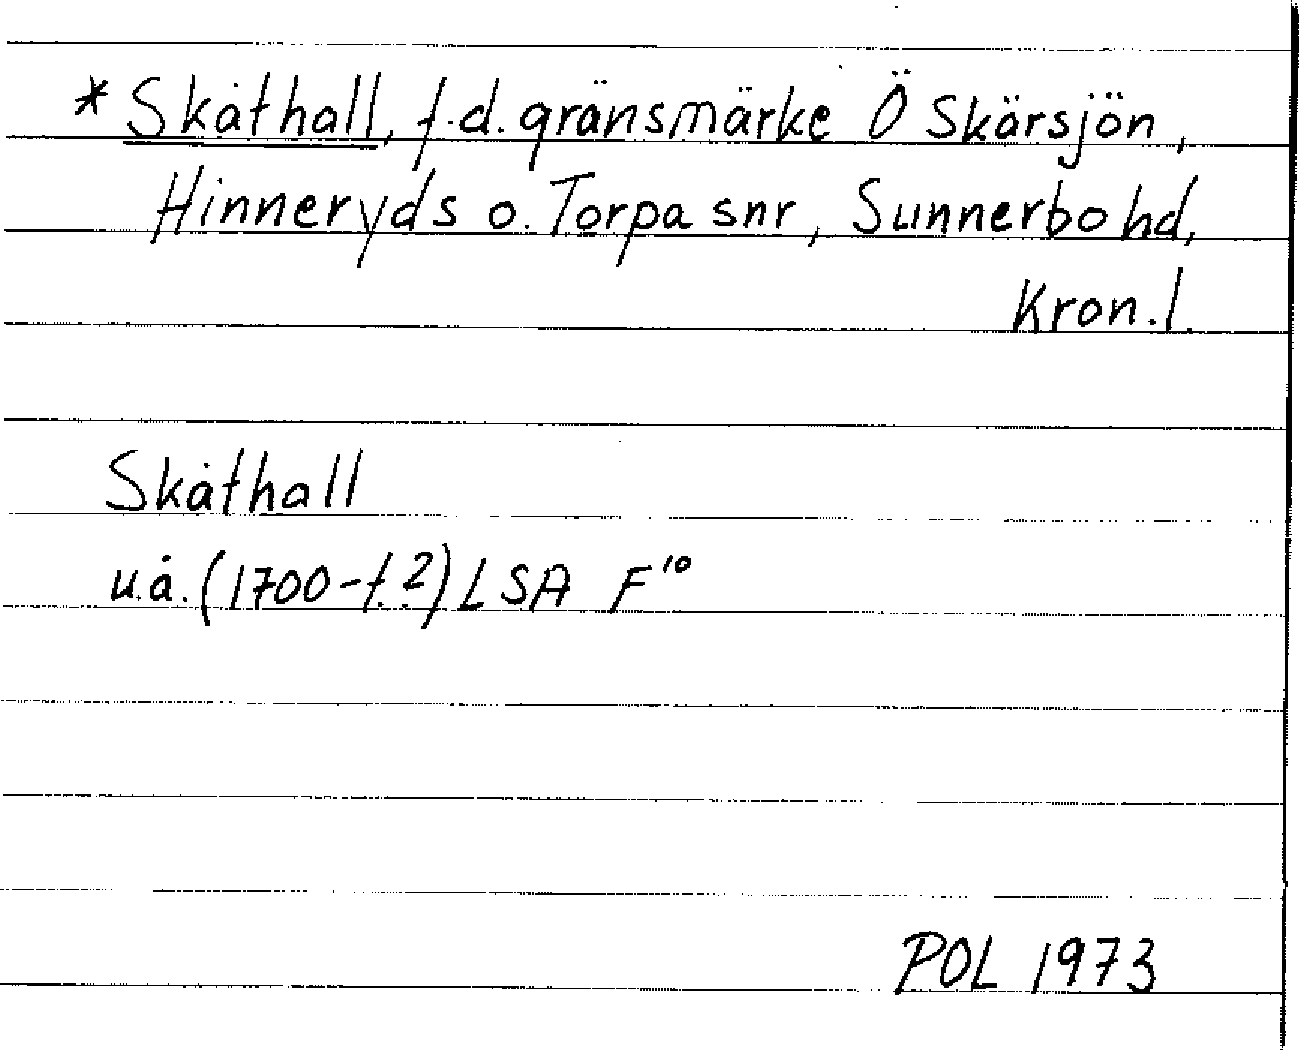 *Skåthall, f.d. gränsmärke Ö Skärsjön,
Hinneryds o. Torpa snr, Sunnerbo hd,
Kron.l.
Skåthall
u.å. (1700-t.?) LSA F¹⁰
POL 1973